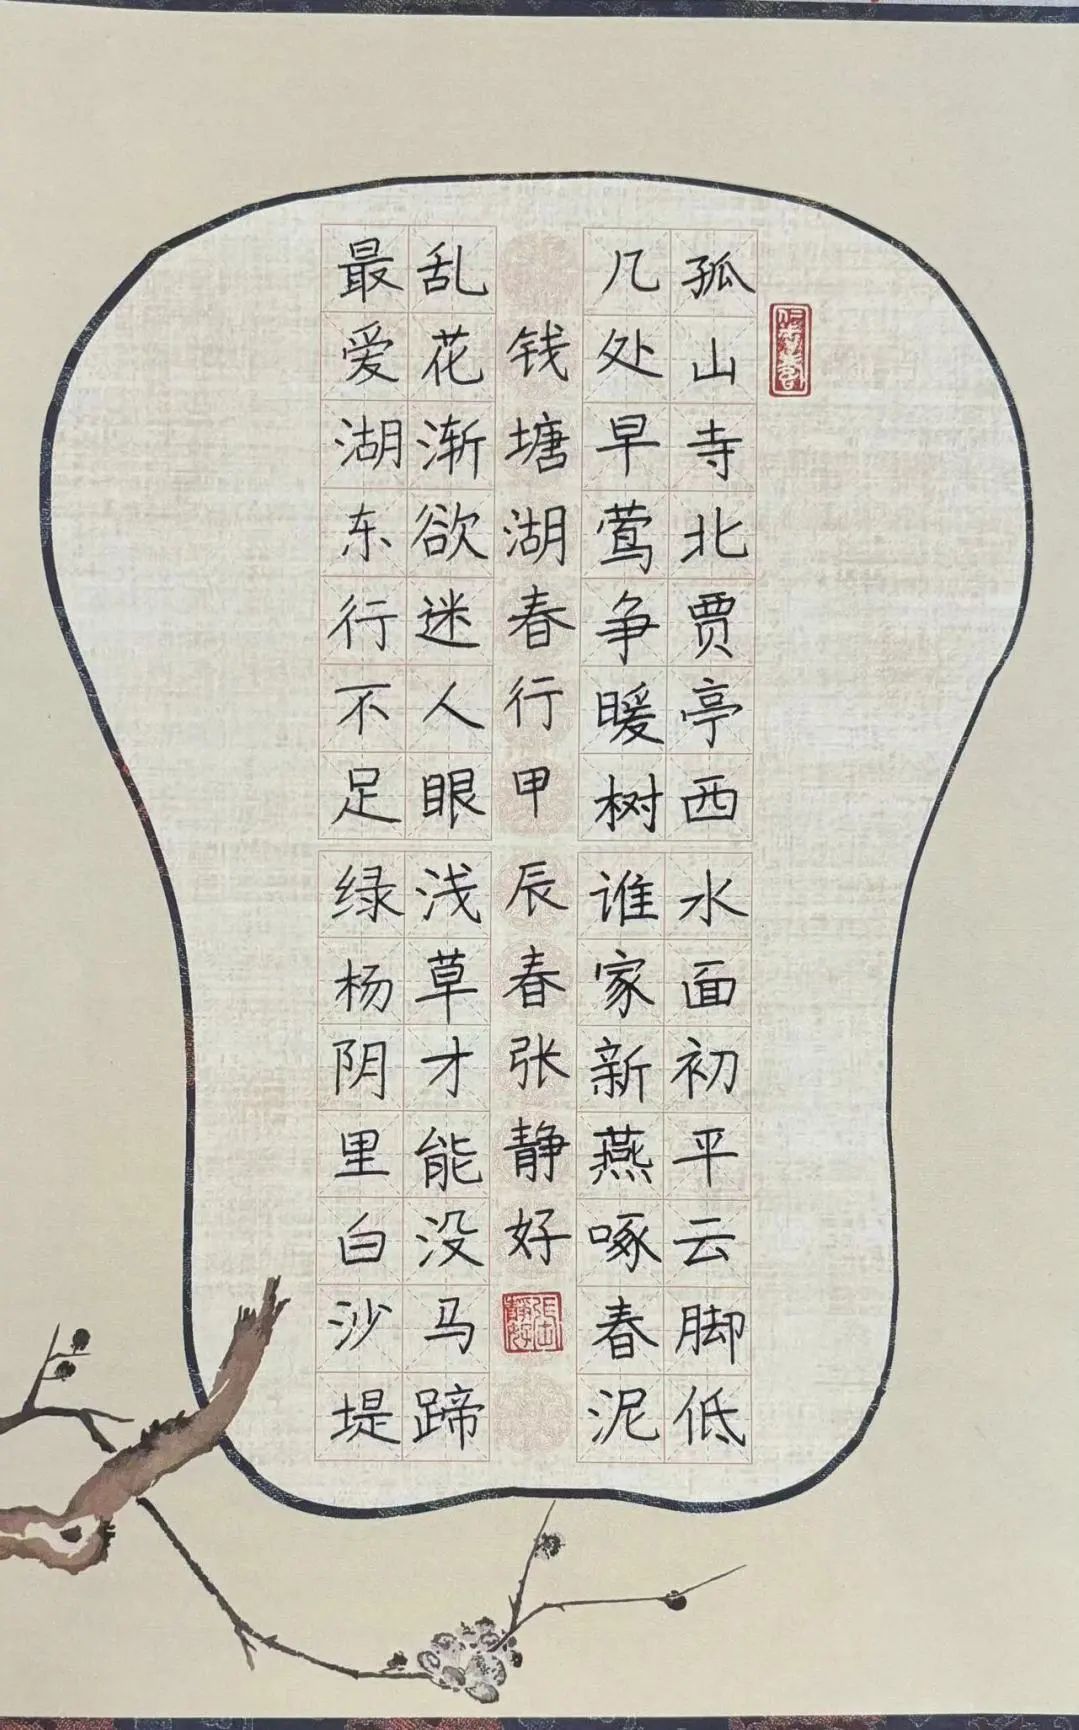 孤山寺北贾亭西水面初平云脚低
几处早莺争暖树谁家新燕啄春泥
钱塘湖春行甲辰春张静好
乱花渐欲迷人眼浅草才能没马蹄
最爱湖东行不足绿杨阴里白沙堤